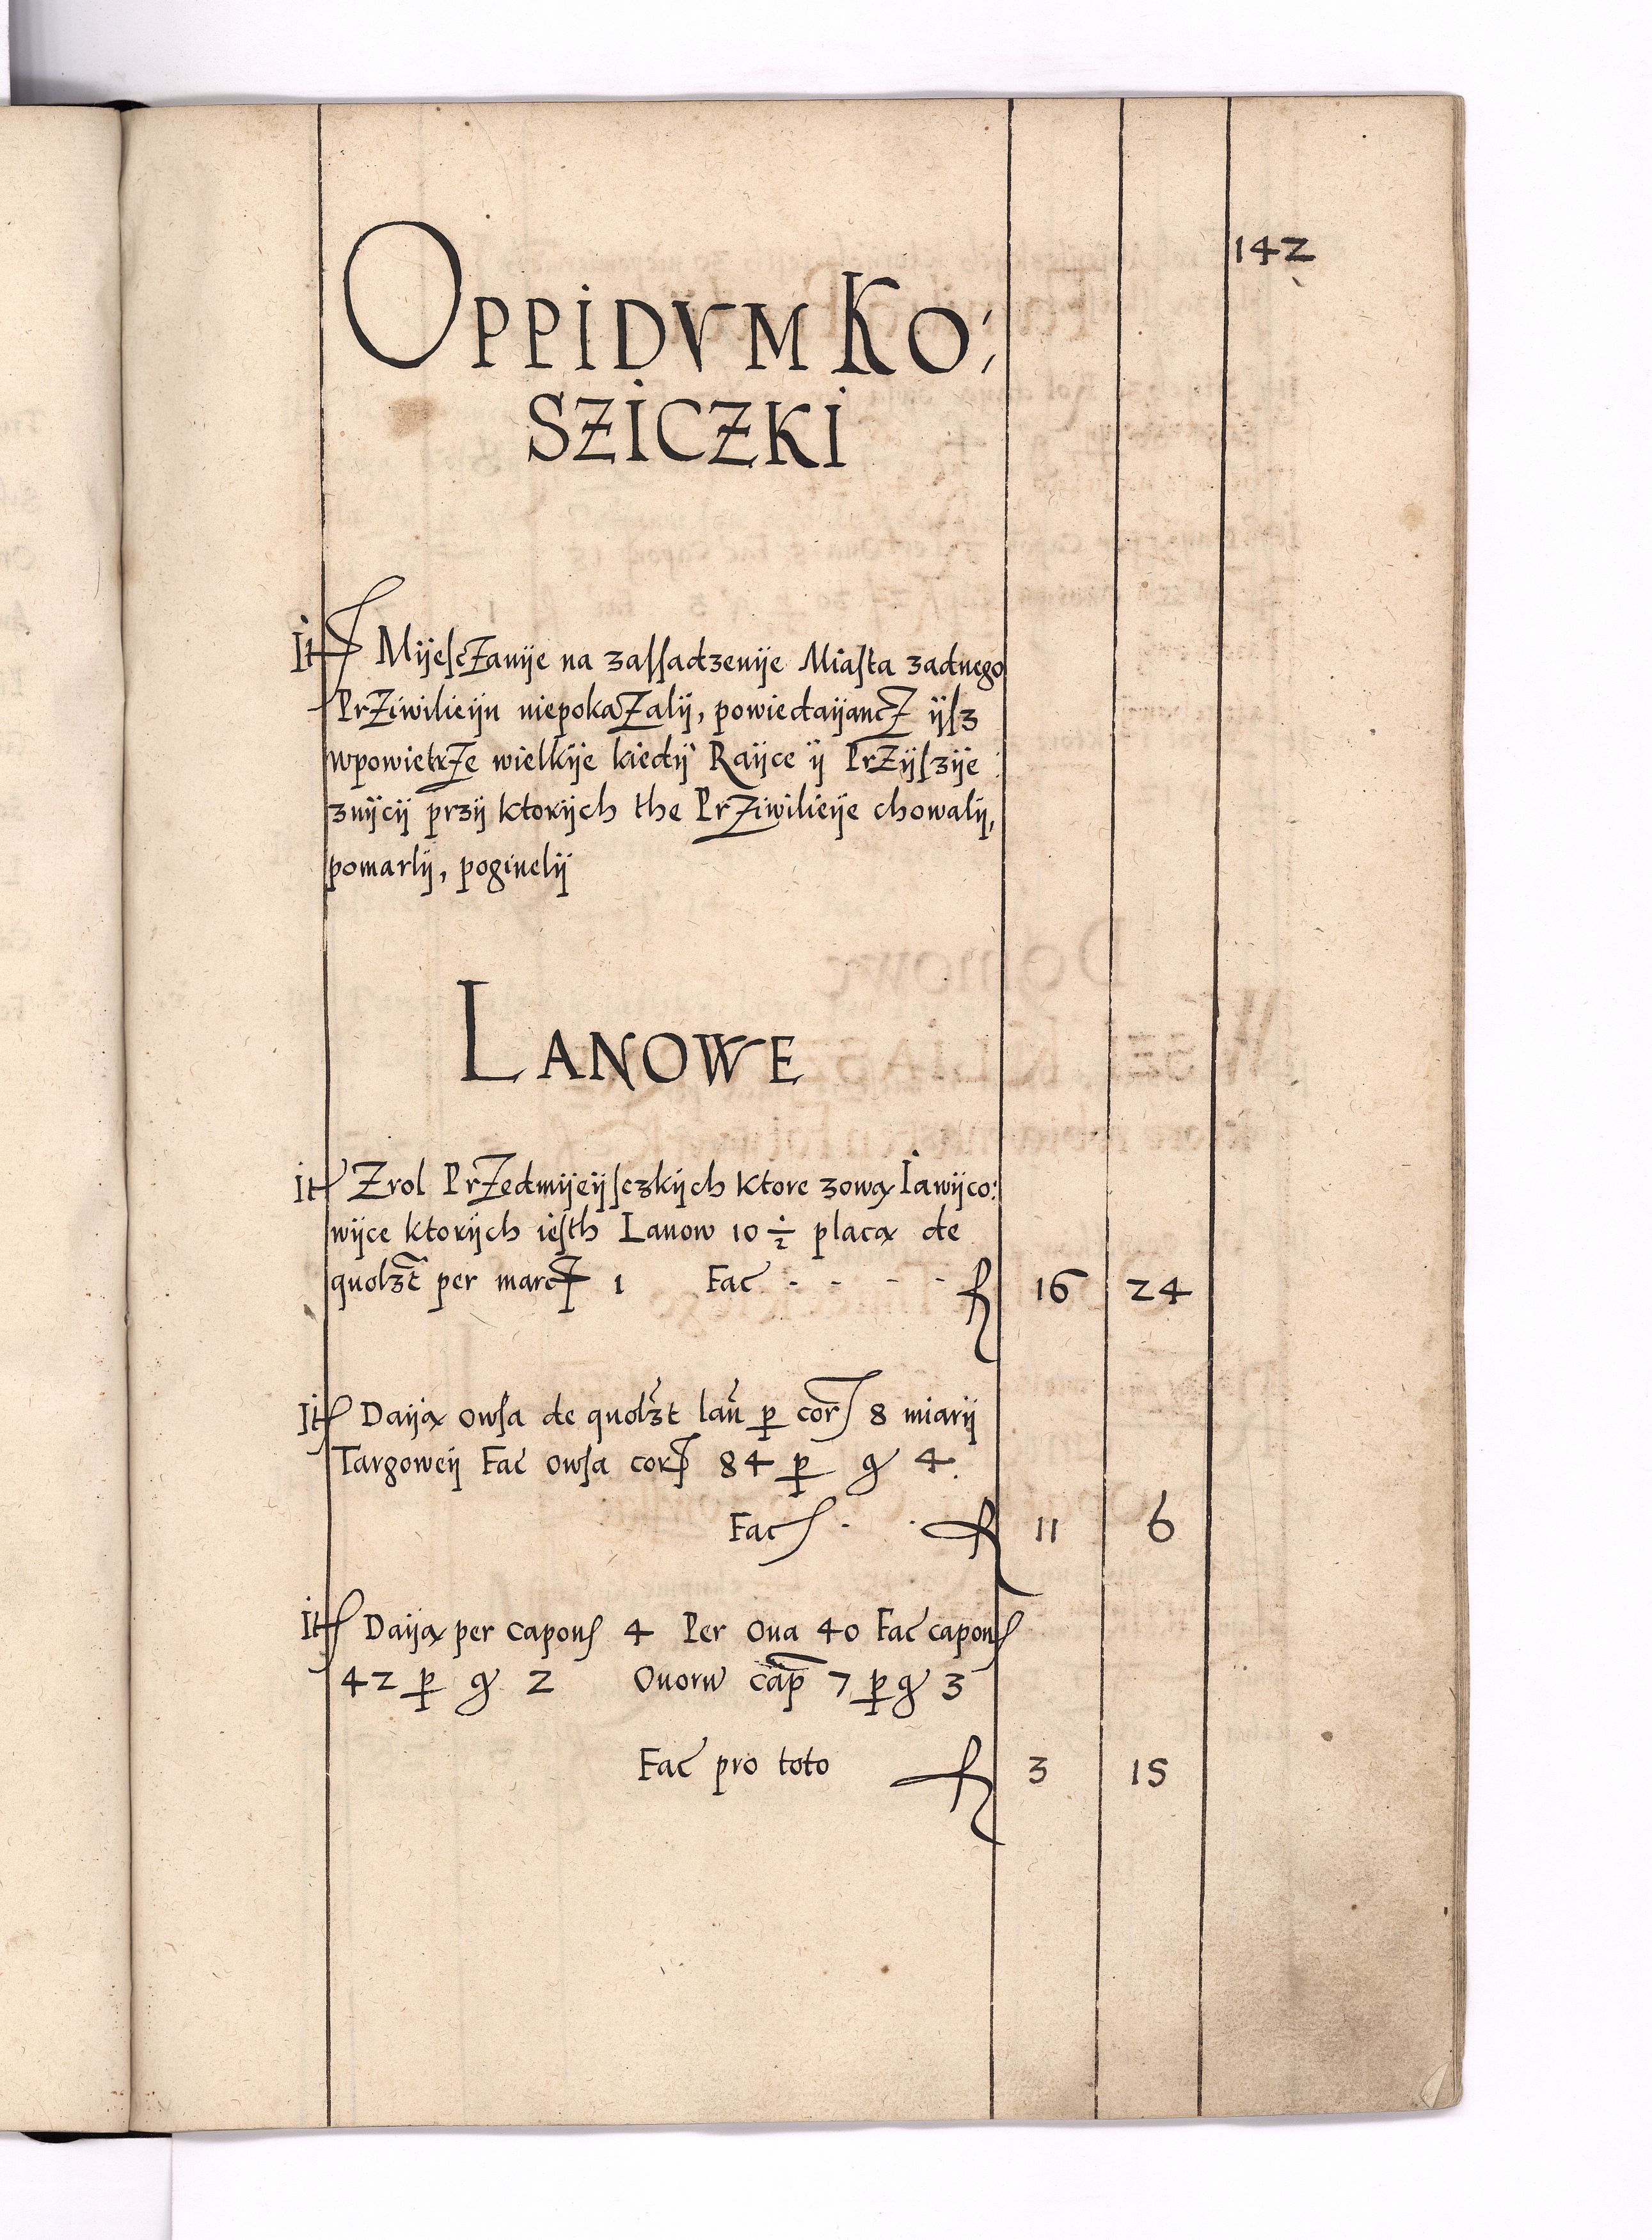 142
OPPIDVM KO:
SZICZKI
It Mÿesczanÿe na zassadzenÿe Miasta zadnego
Prziwilieÿu niepokazalÿ, powiedaÿancz ÿsz
wpowietrze wielkÿe kiedÿ Raÿce ÿ Przÿszÿe
znÿcÿ przÿ ktorÿch the Prziwilieÿe chowalÿ,
pomarlÿ, poginelÿ
LANOWE
It Zrol Przedmÿeÿsczkÿch ktore zową Iawÿco:
wÿce ktorÿch iesth Lanow 10 ½ placą de
quolzt per marc 1 Fac - - - - fl 16 24
It Daÿą owsa de quolzt lan p cor 8 miarÿ
Targoweÿ Fac owsa cor 84 p g 4.
Fac . . fl 11 6
It Daÿą per capon 4 Per Oua 40 Fac capon
42 p g 2 Ouorw cap 7 p g 3
Fac pro toto fl 3 15